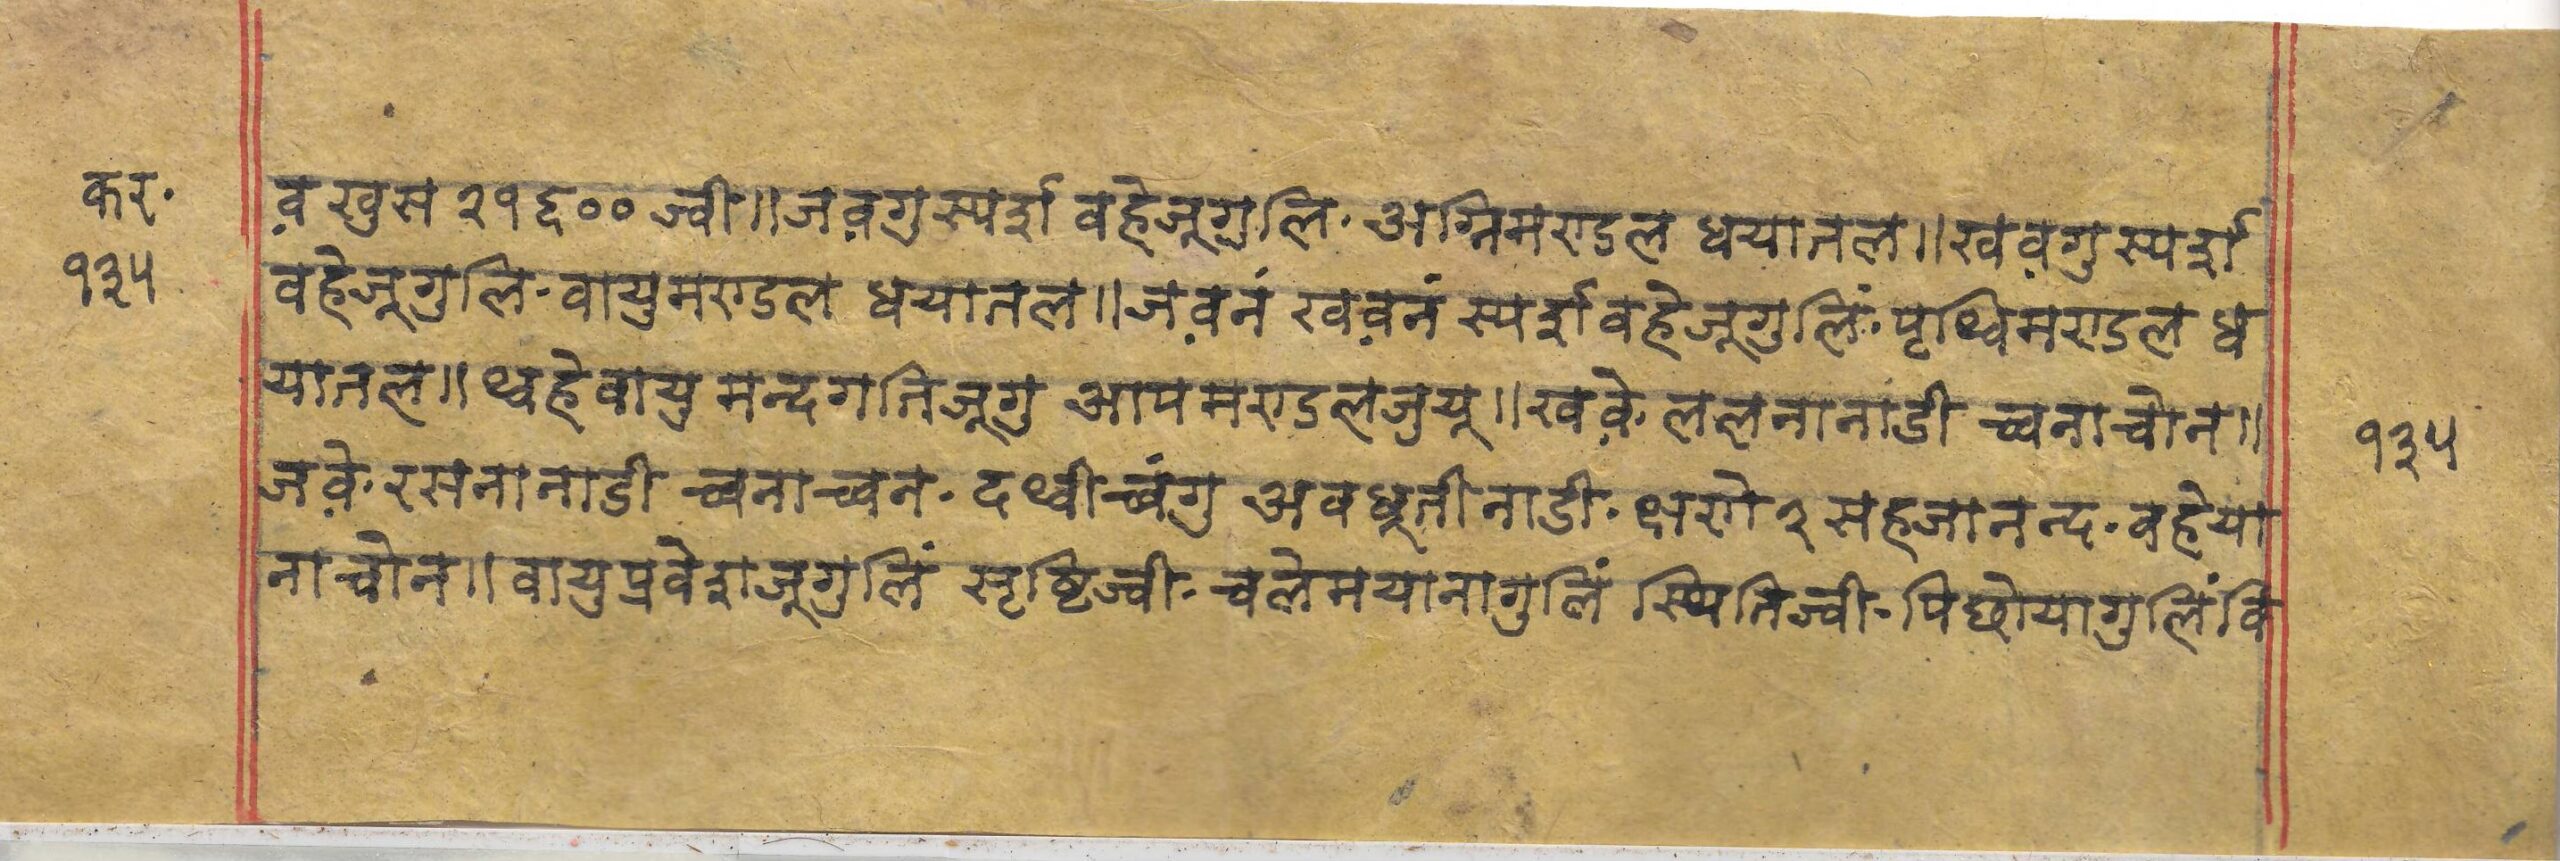 कर.
१३५
व़ खुस २१६०० ज्वी॥ जव़गु स्पर्श वहेजूगुलि. अग्निमण्डल धयातल॥ खव़गु स्पर्श
वहेजूगुलि. वायुमण्डल धयातल॥ जव़नं खव़नं स्पर्श वहेजूगुलिं. पृथ्विमण्डल ध
यातल॥ थ्वहे वायु मन्दगति जूगु आपमण्डल जुयू॥ खव़के ललनानाडी च्वनाचोन॥
जव़के. रसनानाडी च्वनाच्वन. दथ्वीच्वंगु अवधूतीनाडी. क्षणे २ सहजानन्द. वहेया
नाचोन॥ वायुप्रवेशजूगुलिं सृष्टिज्वी. चलेमयानागुलिं स्थितिज्वी. पिछोयागुलिं वि
१३५